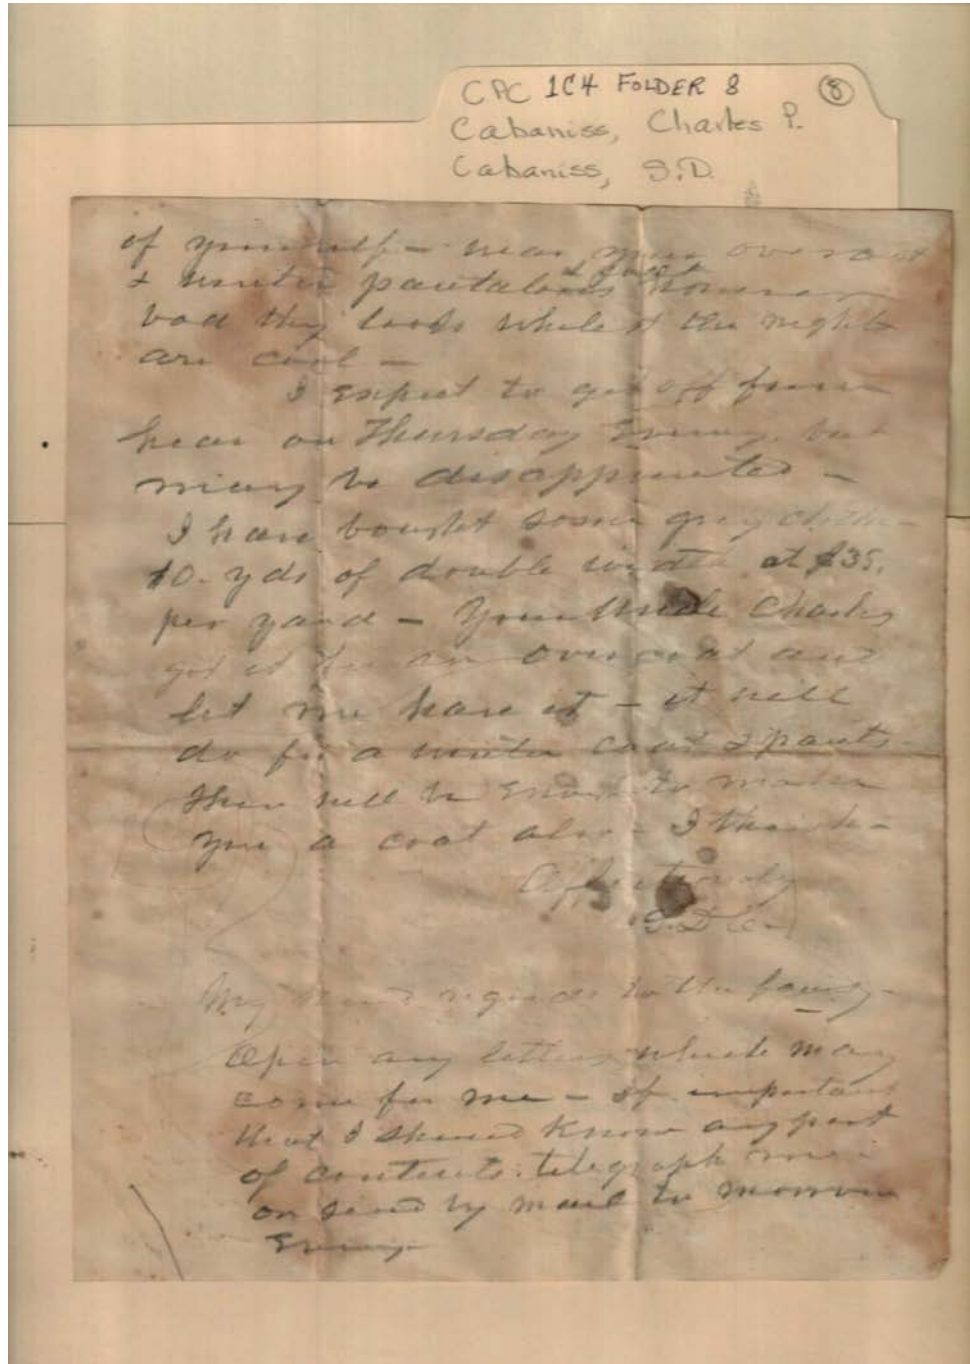 CPC 1C4 FOLDER 8 (8)
Cabaniss, Charles P.
Cabaniss, S.D.
of yourself – wear your overcoat
& winter pantaloons & coat however
bad they look whilst the nights
are cool –
I expect to get off from
hear on Thursday Evening, but
may be disappointed –
I have bought some grey cloth –
10. yds of double width at $35.
per yard – Your Uncle Charles
got it for an overcoat and
let me have it – it will
do for a winter coat & pants –
There will be enough to make
you a coat also – I think –
Affectionately
S.D.C.
My kind regards to the family –
Open any letters which may
come for me – If important
that I should know any part
of contents. telegraph me
or send by mail to morrow
Evening –